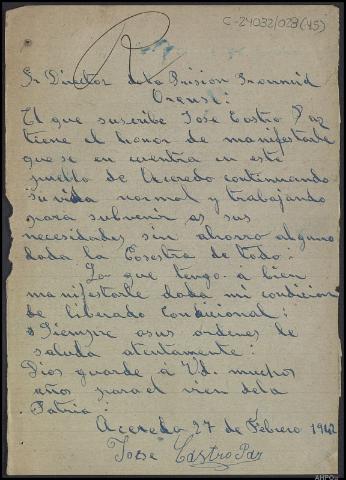 C-24032/028 (45)
R
Sr Director dela Prision Provincial
Orense:
El que suscribe José Castro Paz
tiene el honor de manifestarle
que se en cuentra en este
pueblo de Acevedo continuando
su vida normal y trabajando
para subvenir as sus
necesidades sin ahorro alguno
dada la Cosestra de todo.
Lo que tengo á bien
manifestarle dada mi condicion
de liberado Condicional:
Siempre asus ordenes le
saluda atentamente:
Dios guarde á Vd. muchos
años para el vien dela
Patria:
Acevedo 27 de Febrero 1942
José Castro Paz
AHPOu